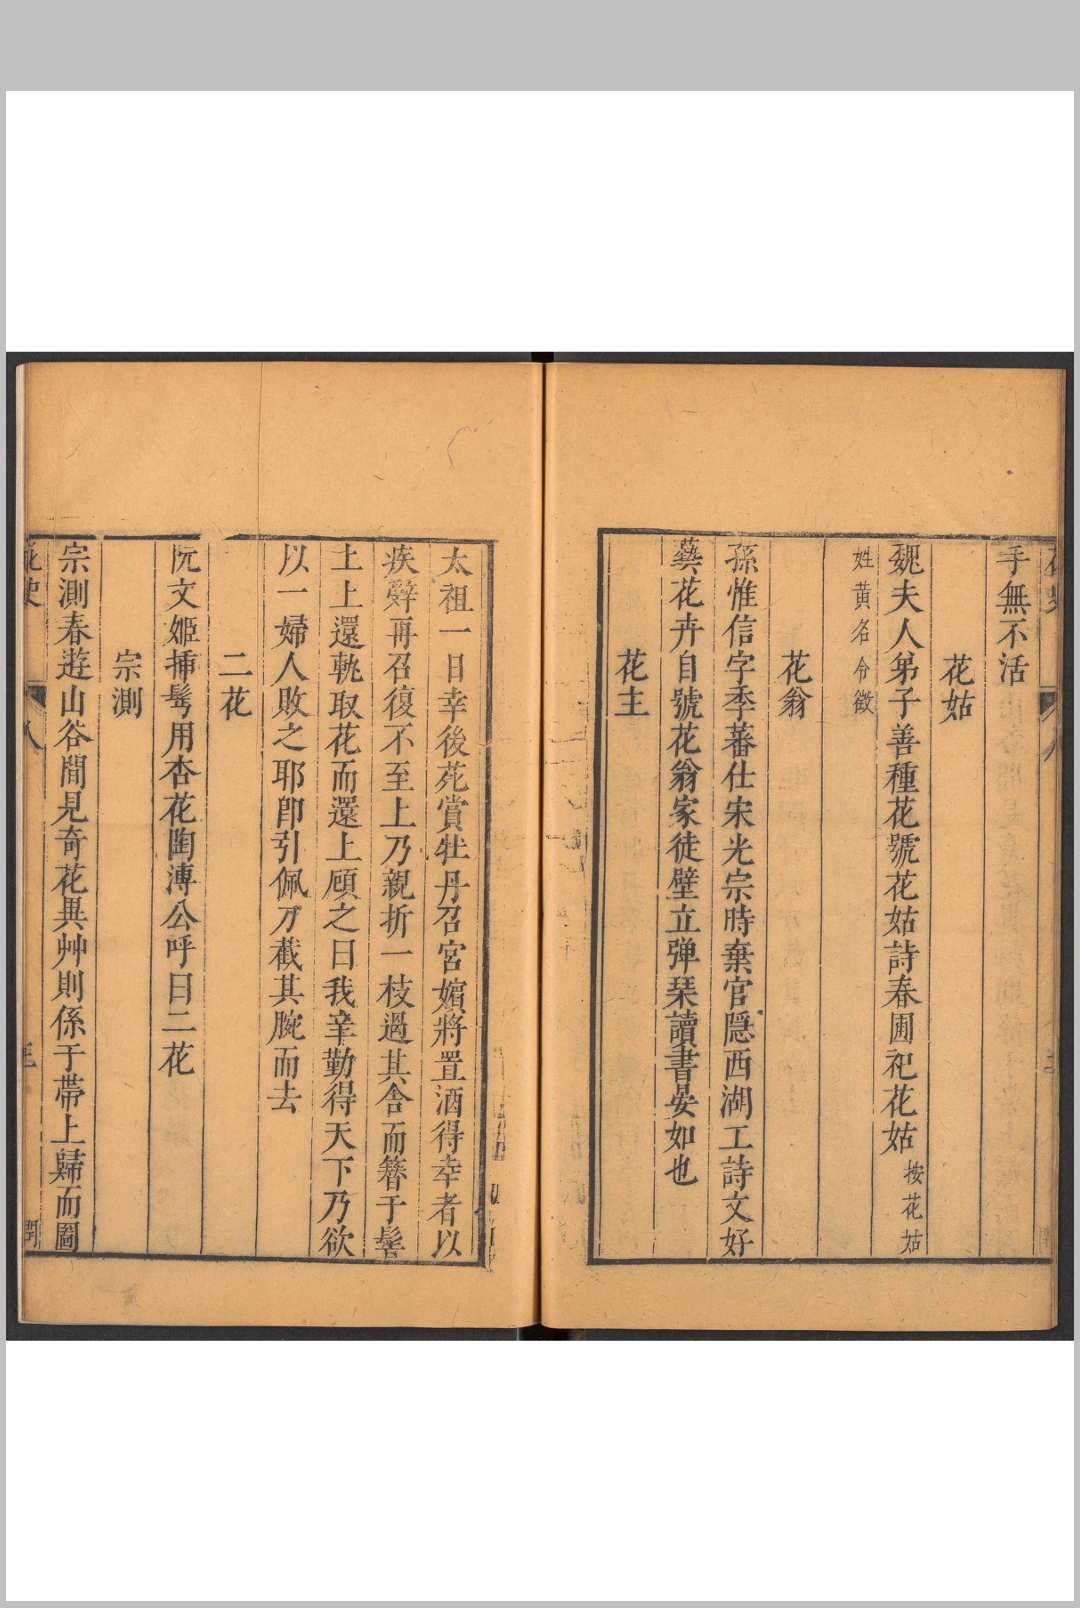 手無不活
花姑
魏夫人弟子善種花號花姑詩春圃祀花姑按花姑
姓黄名令徵
花翁
孫惟信字季蕃仕宋光宗時棄官隱西湖工詩文好
藝花卉自號花翁家徒壁立弾琹讀書晏如也
花主
太祖一日幸後苑賞牡丹召宮嬪將置酒得幸者以
疾辤再召復不至上乃親折一枝過其舎而簪于髻
上上還輒取花而還上顧之曰我辛勤得天下乃欲
以一婦人敗之耶卽引佩刀截其腕而去
二花
阮文姬揷鬢用杏花陶溥公呼曰二花
宗測
宗測春遊山谷間見奇花異艸則係于帶上歸而圖